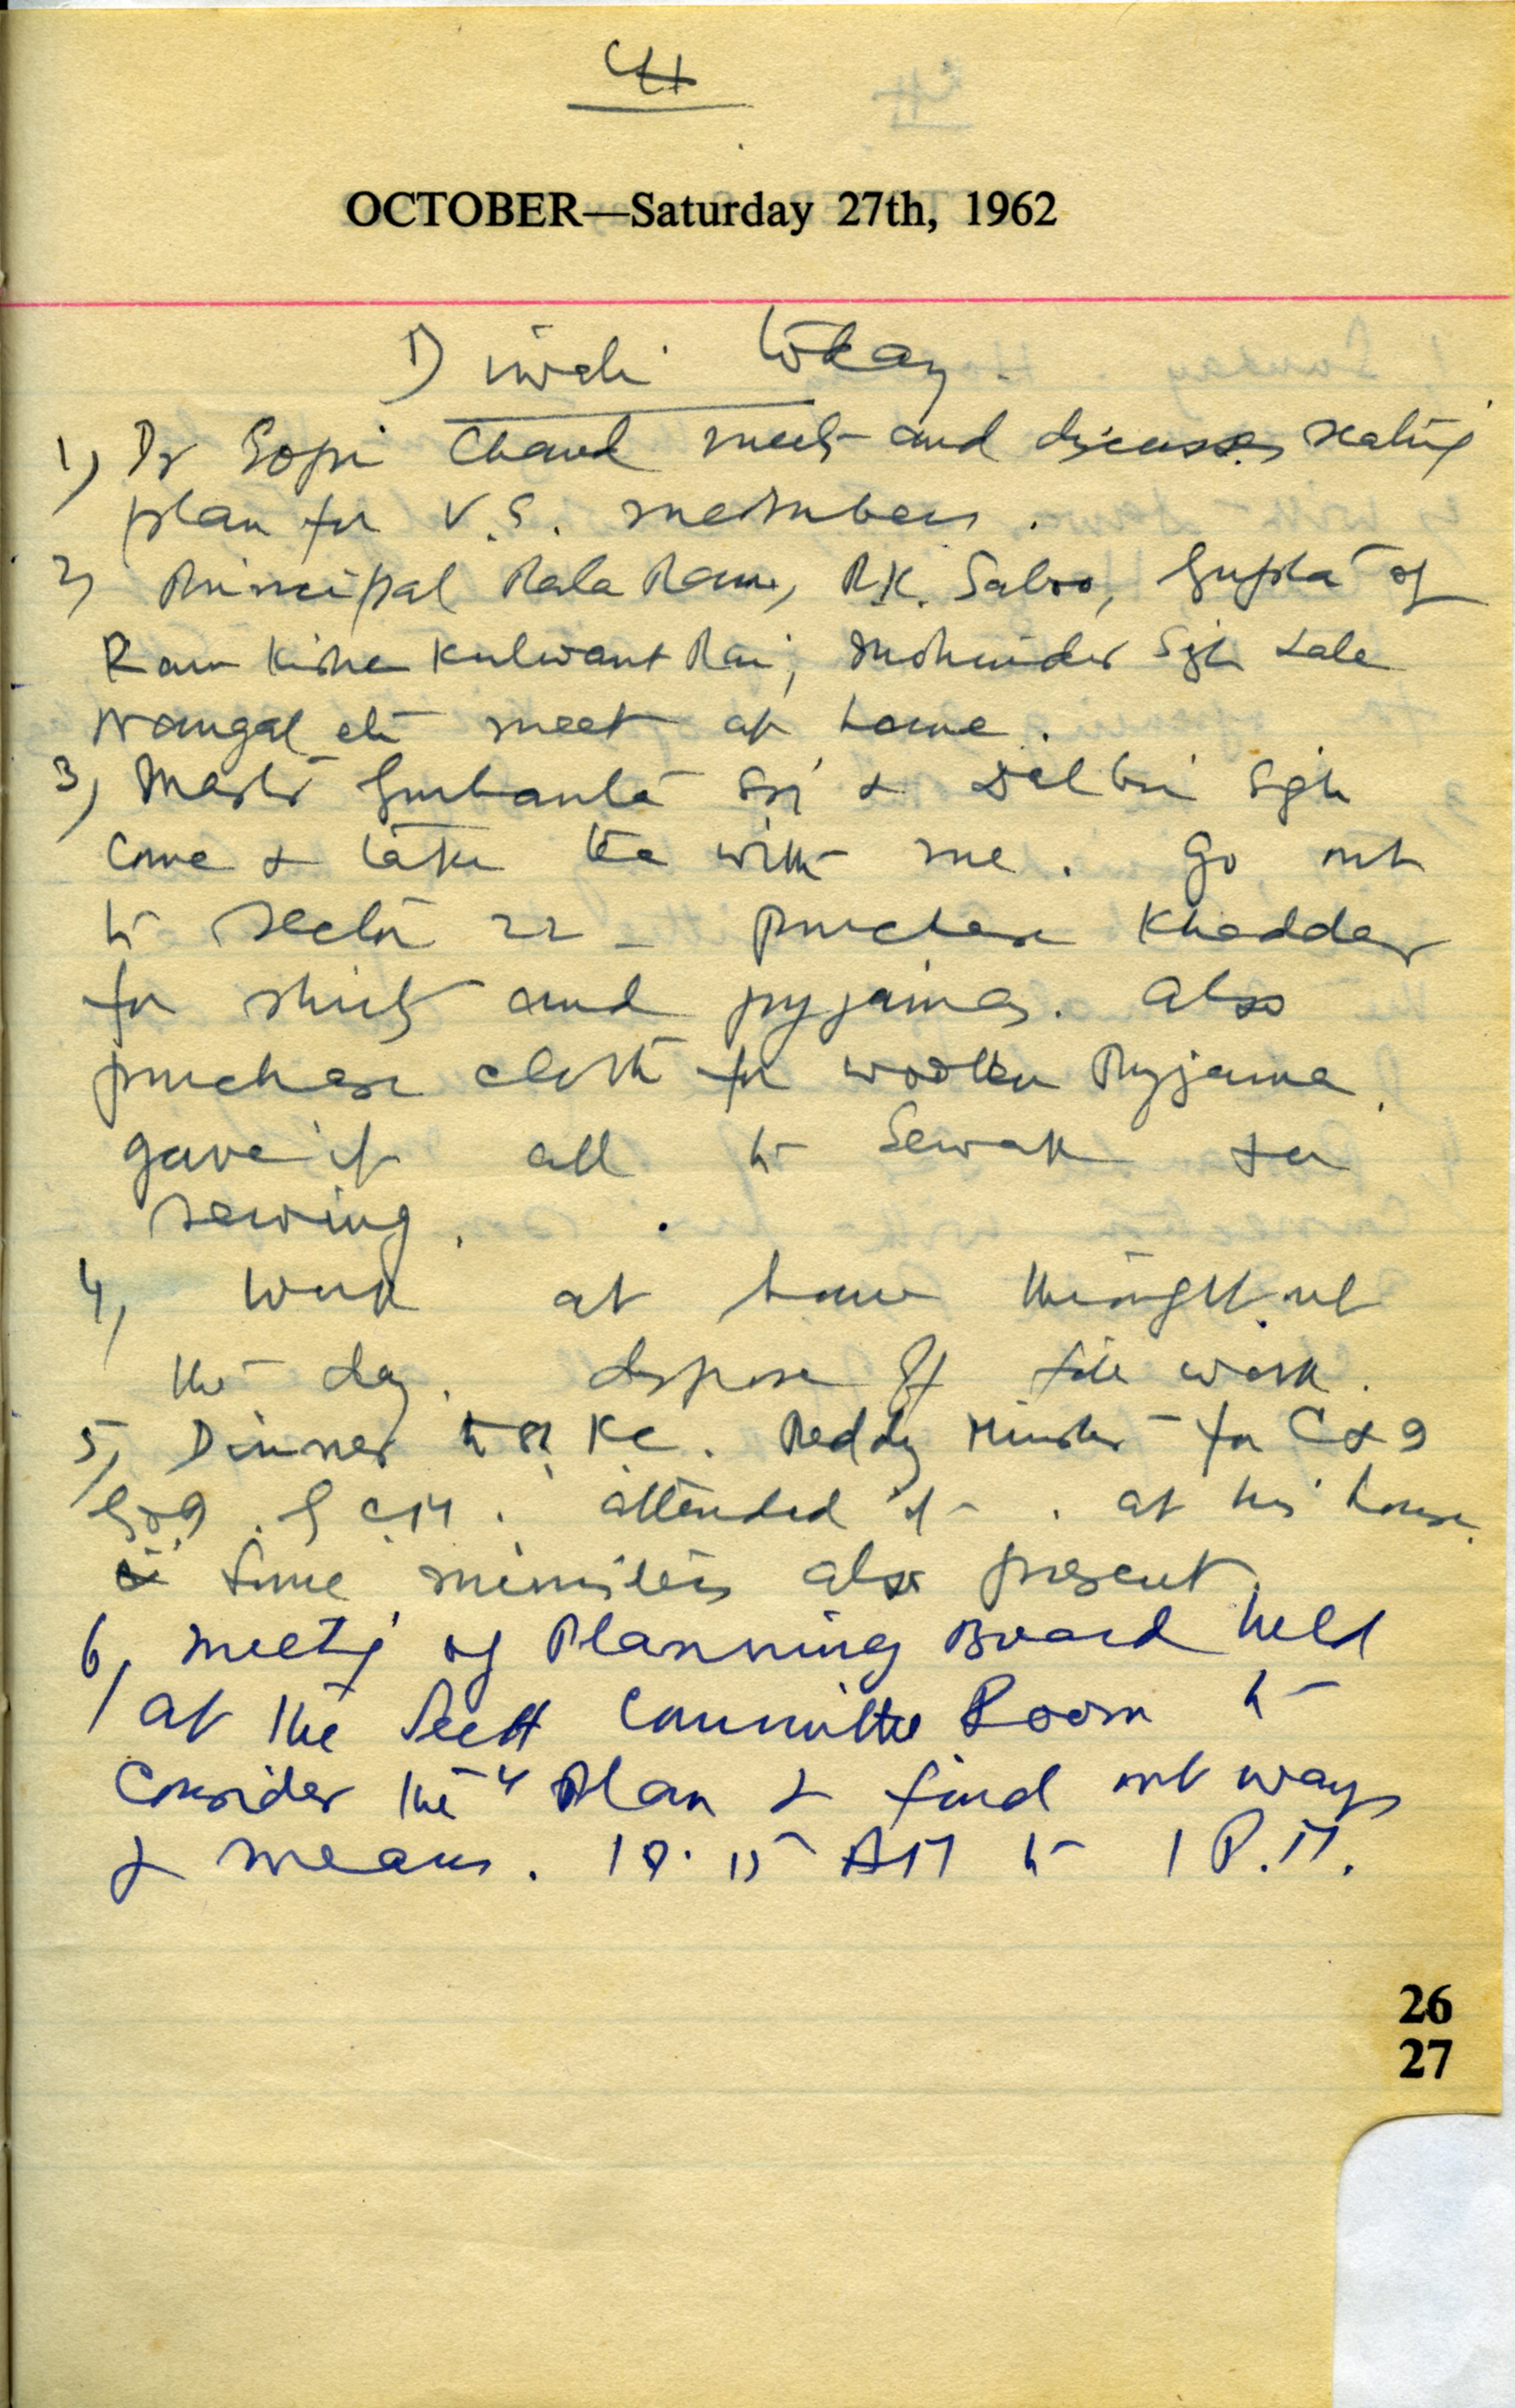 CH
OCTOBER—Saturday 27th, 1962
Diwali today
1) Dr Gopi Chand meets and discusses seating
plan for V.S. members.
2) Principal Rala Ram, R.K. Saboo, Gupta of
Ram Kishen Kulwant Rai, Mohinder Sgh Lale
Nangal etc meet at home.
3) Master Gurbanta Sgh & Dalbir Sgh
Come & take tea with me. Go out
to Sector 22 - purchase Khaddar
for shirts and pyjamas. Also
purchase cloth for woollen Pyjama.
gave it all to Sewak for
sewing.
4, Work at home throughout
the day. dispose of file work.
5, Dinner to K.C. Reddy Minister for C & I
G.O.I. by C.M. attended it. at his house.
Some ministers also present.
6, Meeting of Planning Board held
at the Sectt Committee Room to
Consider the 4 Plan & find out ways
& means. 10.15 AM to 1 P.M.
26
27